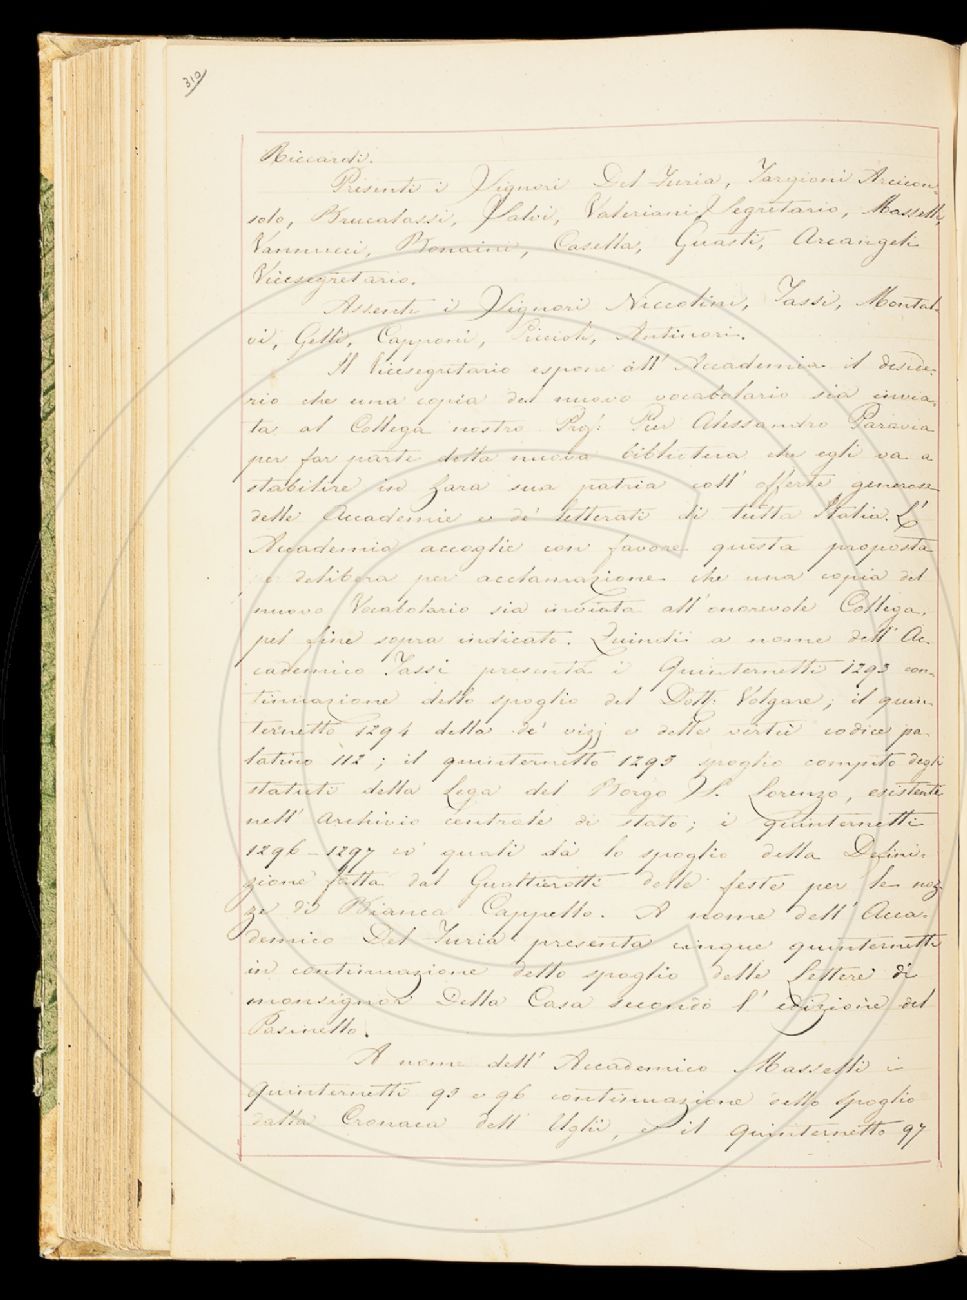 310
Riccardi.
Presenti i Signori Del Furia, Targioni Arcicon-
solo, Brucalassi, Salvi, Valeriani Segretario, Masselli,
Vannucci, Bonaini, Casella, Guasti, Arcangeli
Vicesegretario.
Assenti i Signori Niccolini, Tassi, Montal-
vi, Gelli, Capponi, Piccioli, Antinori.
Il Vicesegretario espone all' Accademia il deside-
rio che una copia del nuovo vocabolario sia invia-
ta al Collega nostro Prof. Pier Alessandro Paravia
per far parte della nuova biblioteca che egli va a
stabilire in Zara sua patria coll' offerte generose
delle Accademie e de' letterati di tutta Italia. L'
Accademia accoglie con favore questa proposta
e delibera per acclamazione che una copia del
nuovo Vocabolario sia inviata all' onorevole Collega,
pel fine sopra indicato. Quindi a nome dell' Ac-
cademico Tassi presenta i Quinternetti 1293 con-
tinuazione dello spoglio del Dott. Volgare; il quin-
ternetto 1294 della de' vizj e delle virtù codice pa-
latino 112; il quinternetto 1295 spoglio compito degli
statuti della Lega del Borgo S. Lorenzo, esistente
nell' Archivio centrale di stato; i quinternetti
1296-1297 co' quali dà lo spoglio della Descri-
zione fatta dal Gualterotti delle feste per le noz-
ze di Bianca Cappello. A nome dell' Acca-
demico Del Furia presenta cinque quinternetti
in continuazione dello spoglio delle Lettere di
monsignor Della Casa secondo l' edizione del
Pasinello.
A nome dell' Accademico Masselli i
quinternetti 95 e 96 continuazione dello spoglio
dalla Cronaca dell' Ughi, e il quinternetto 97